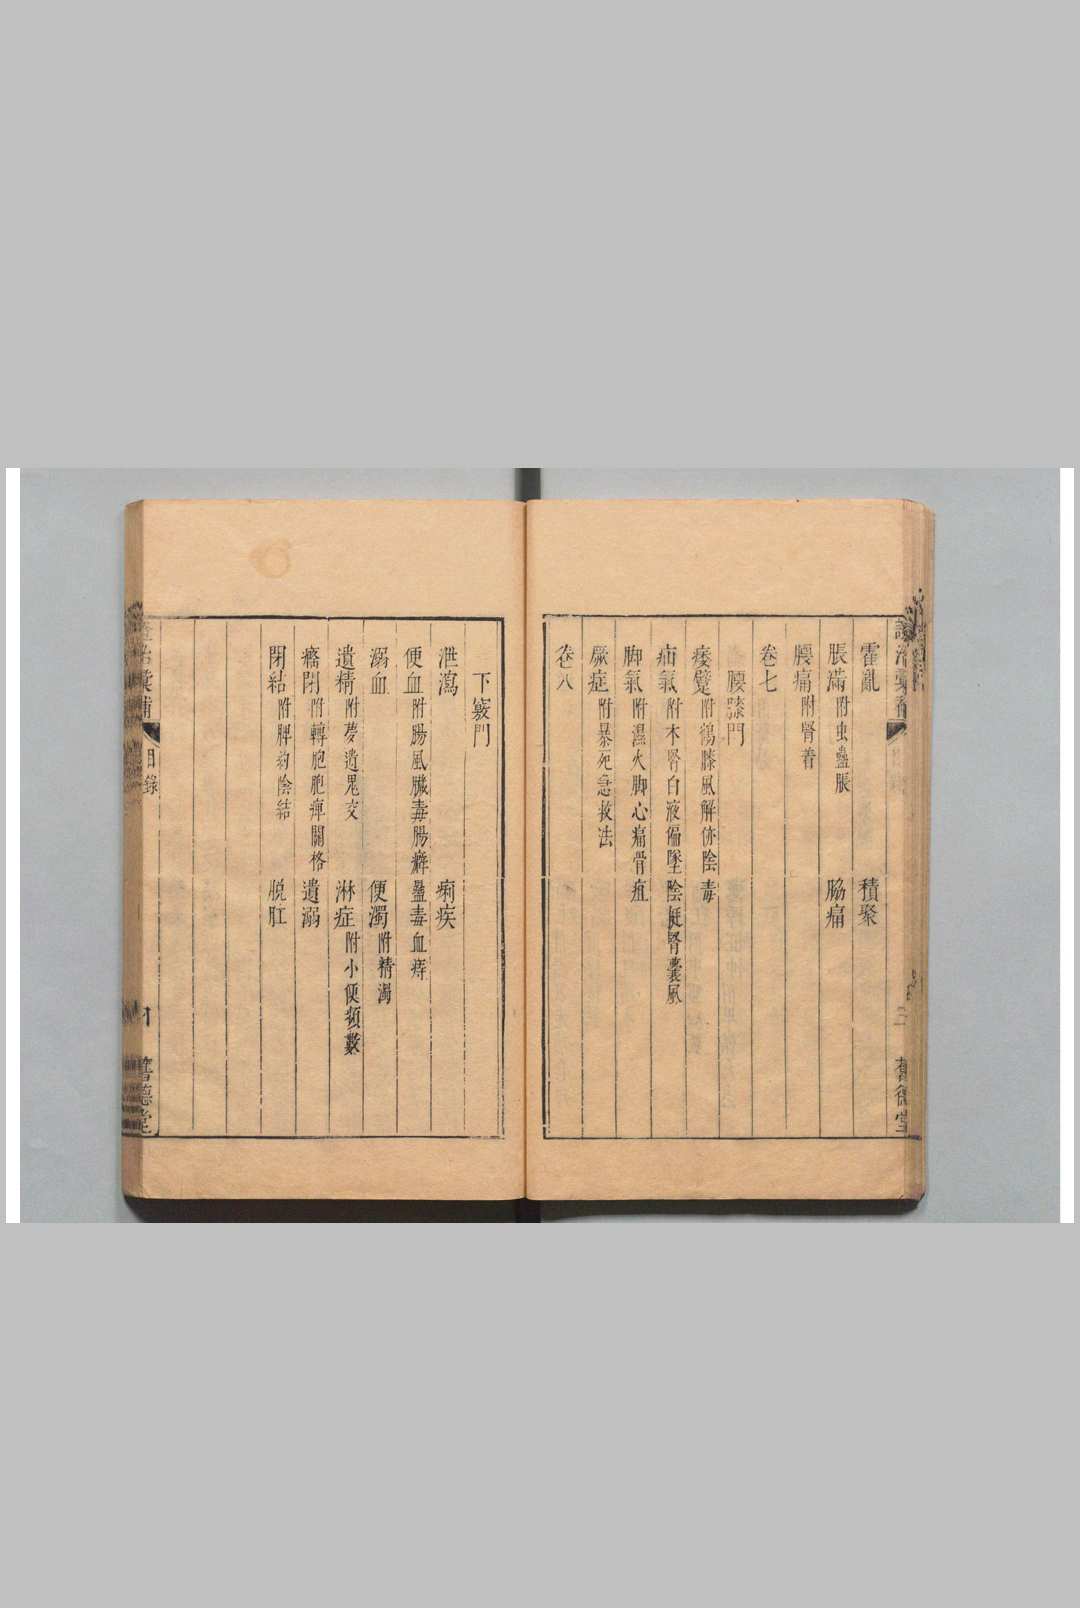 霍亂　積聚
脹滿附虫蠱脹　脇痛
腰痛附腎着
卷七
腰膝門
痿躄附鶴膝風解㑊陰毒
疝氣附木腎白液偏墜陰挺腎囊風
脚氣附濕火脚心痛骨疽
厥症附暴死急救法
卷八
下竅門
泄瀉　痢疾
便血附腸風臟毒腸癖蠱毒血痔
溺血　便濁附精濁
遺精附夢遺鬼交　淋症附小便頻數
癃閉附轉胞胞痺關格　遺溺
閉結附脾約陰結　脫肛
目錄
舊德堂